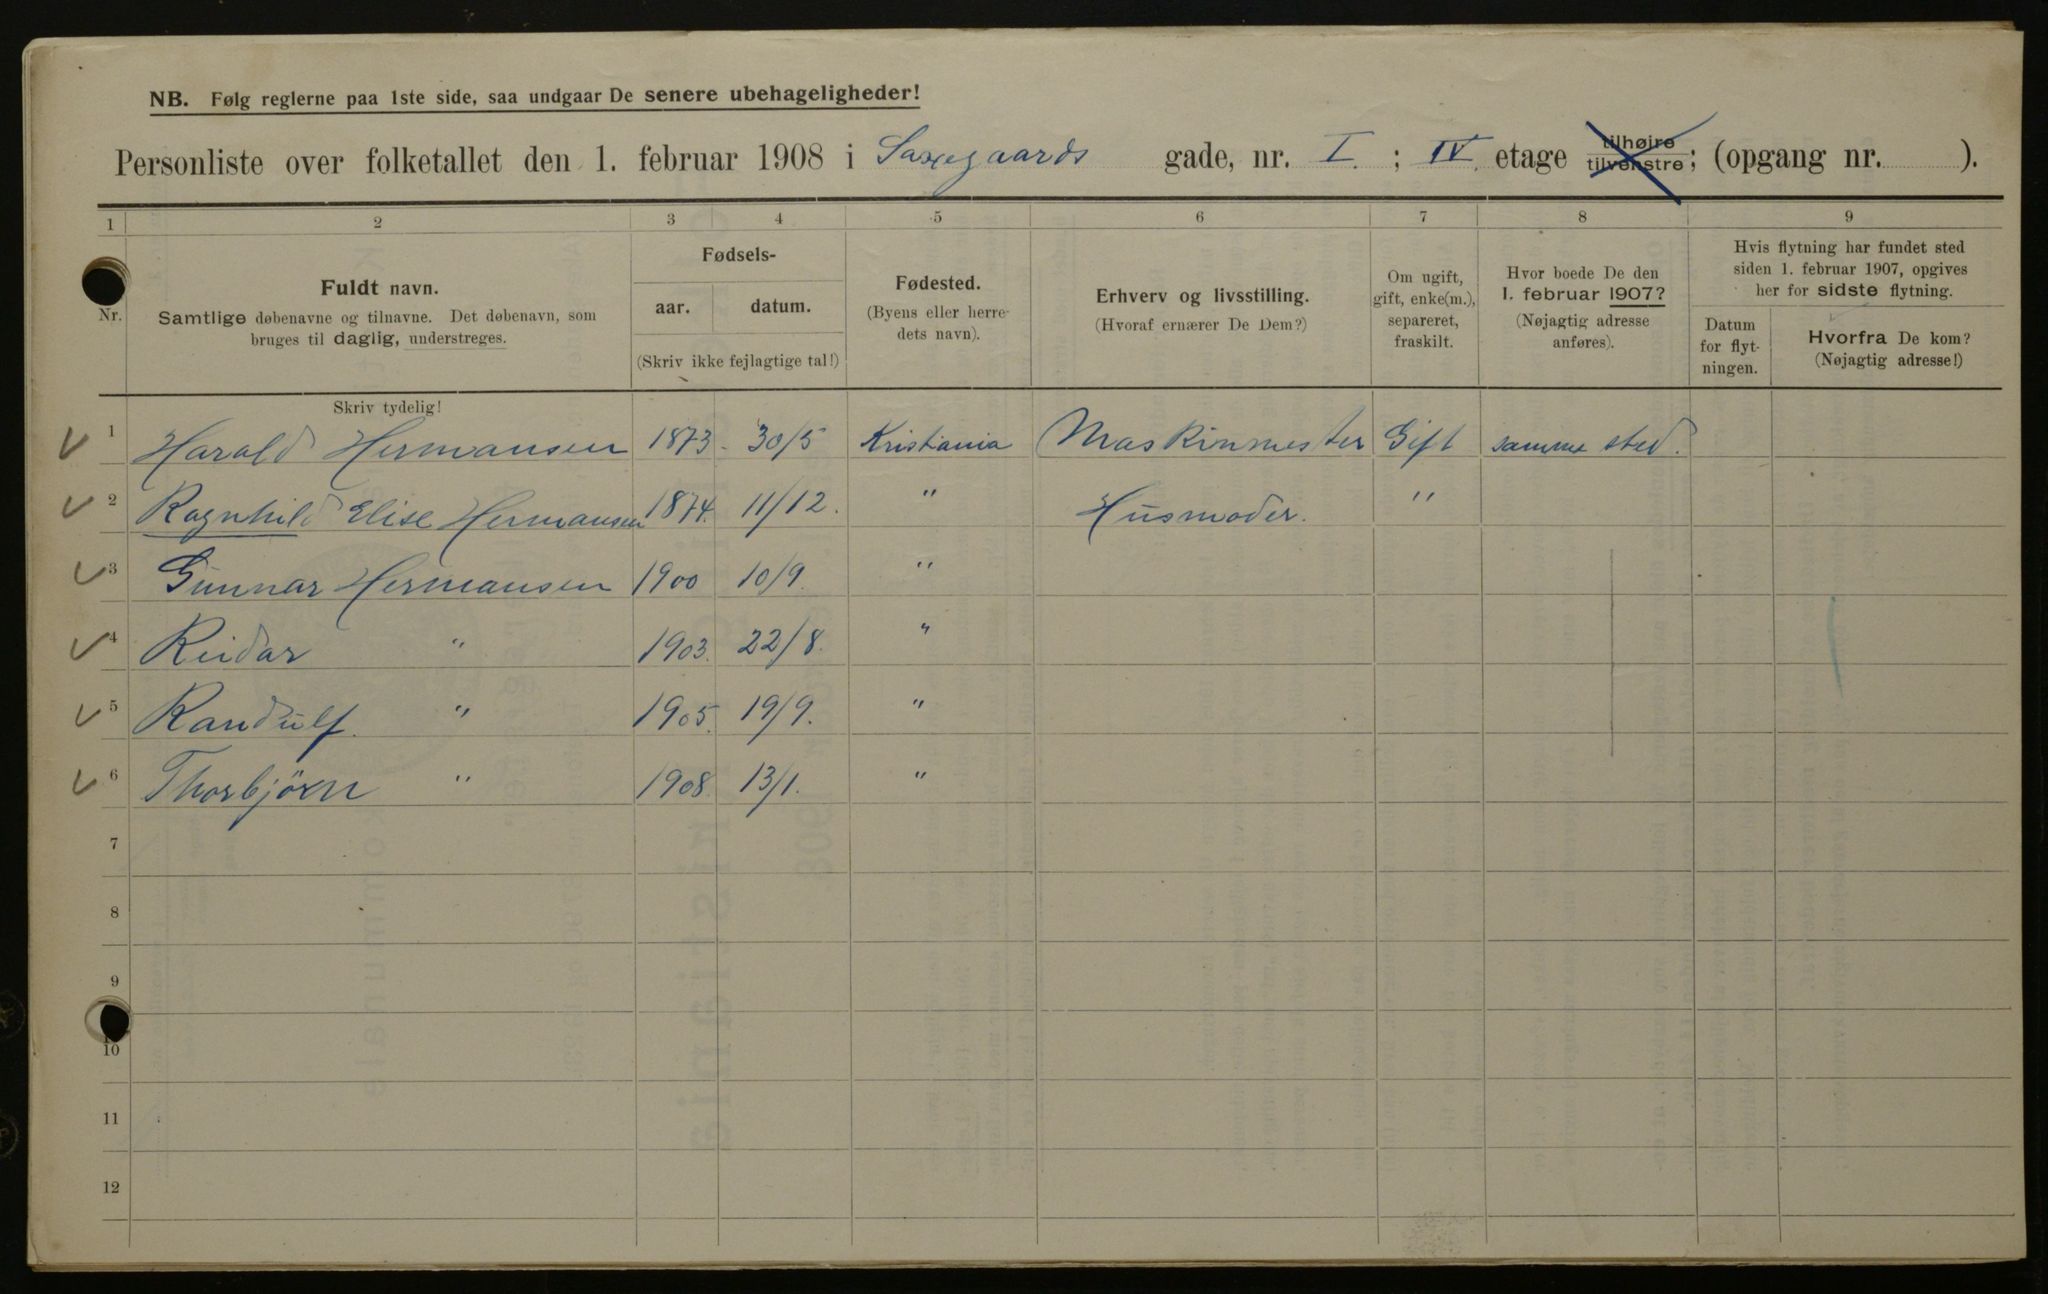 NB. Følg reglerne paa 1ste side, saa undgaar De senere ubehageligheder!
Personliste over folketallet den 1. februar 1908 i Saxegaards gade, nr. I. ; IV. etage tilhøire tilvenstre; (opgang nr. ).
1 2 3 4 5 6 7 8 9
Nr.
Fuldt navn.
Samtlige døbenavne og tilnavne. Det døbenavn, som
bruges til daglig, understreges.
Skriv tydelig!
Fødsels-
aar. datum.
(Skriv ikke fejlagtige tal!)
Fødested.
(Byens eller herre-
dets navn).
Erhverv og livsstilling.
(Hvoraf ernærer De Dem?)
Om ugift,
gift, enke(m.),
separeret,
fraskilt.
Hvor boede De den
1. februar 1907?
(Nøjagtig adresse
anføres).
Hvis flytning har fundet sted
siden 1. februar 1907, opgives
her for sidste flytning.
Datum
for flyt-
ningen.
Hvorfra De kom?
(Nøjagtig adresse!)
1 Harald Hermansen 1873 - 30/5 Kristiania Maskinmester Gift samme sted.
2 Ragnhild Elise Hermansen 1874. 11/12. " Husmoder. "
3 Gunnar Hermansen 1900 10/9. "
4 Reidar " 1903. 22/8. "
5 Randulf. " 1905. 19/9. "
6 Thorbjörn " 1908. 13/1. "
7
8
9
10
11
12